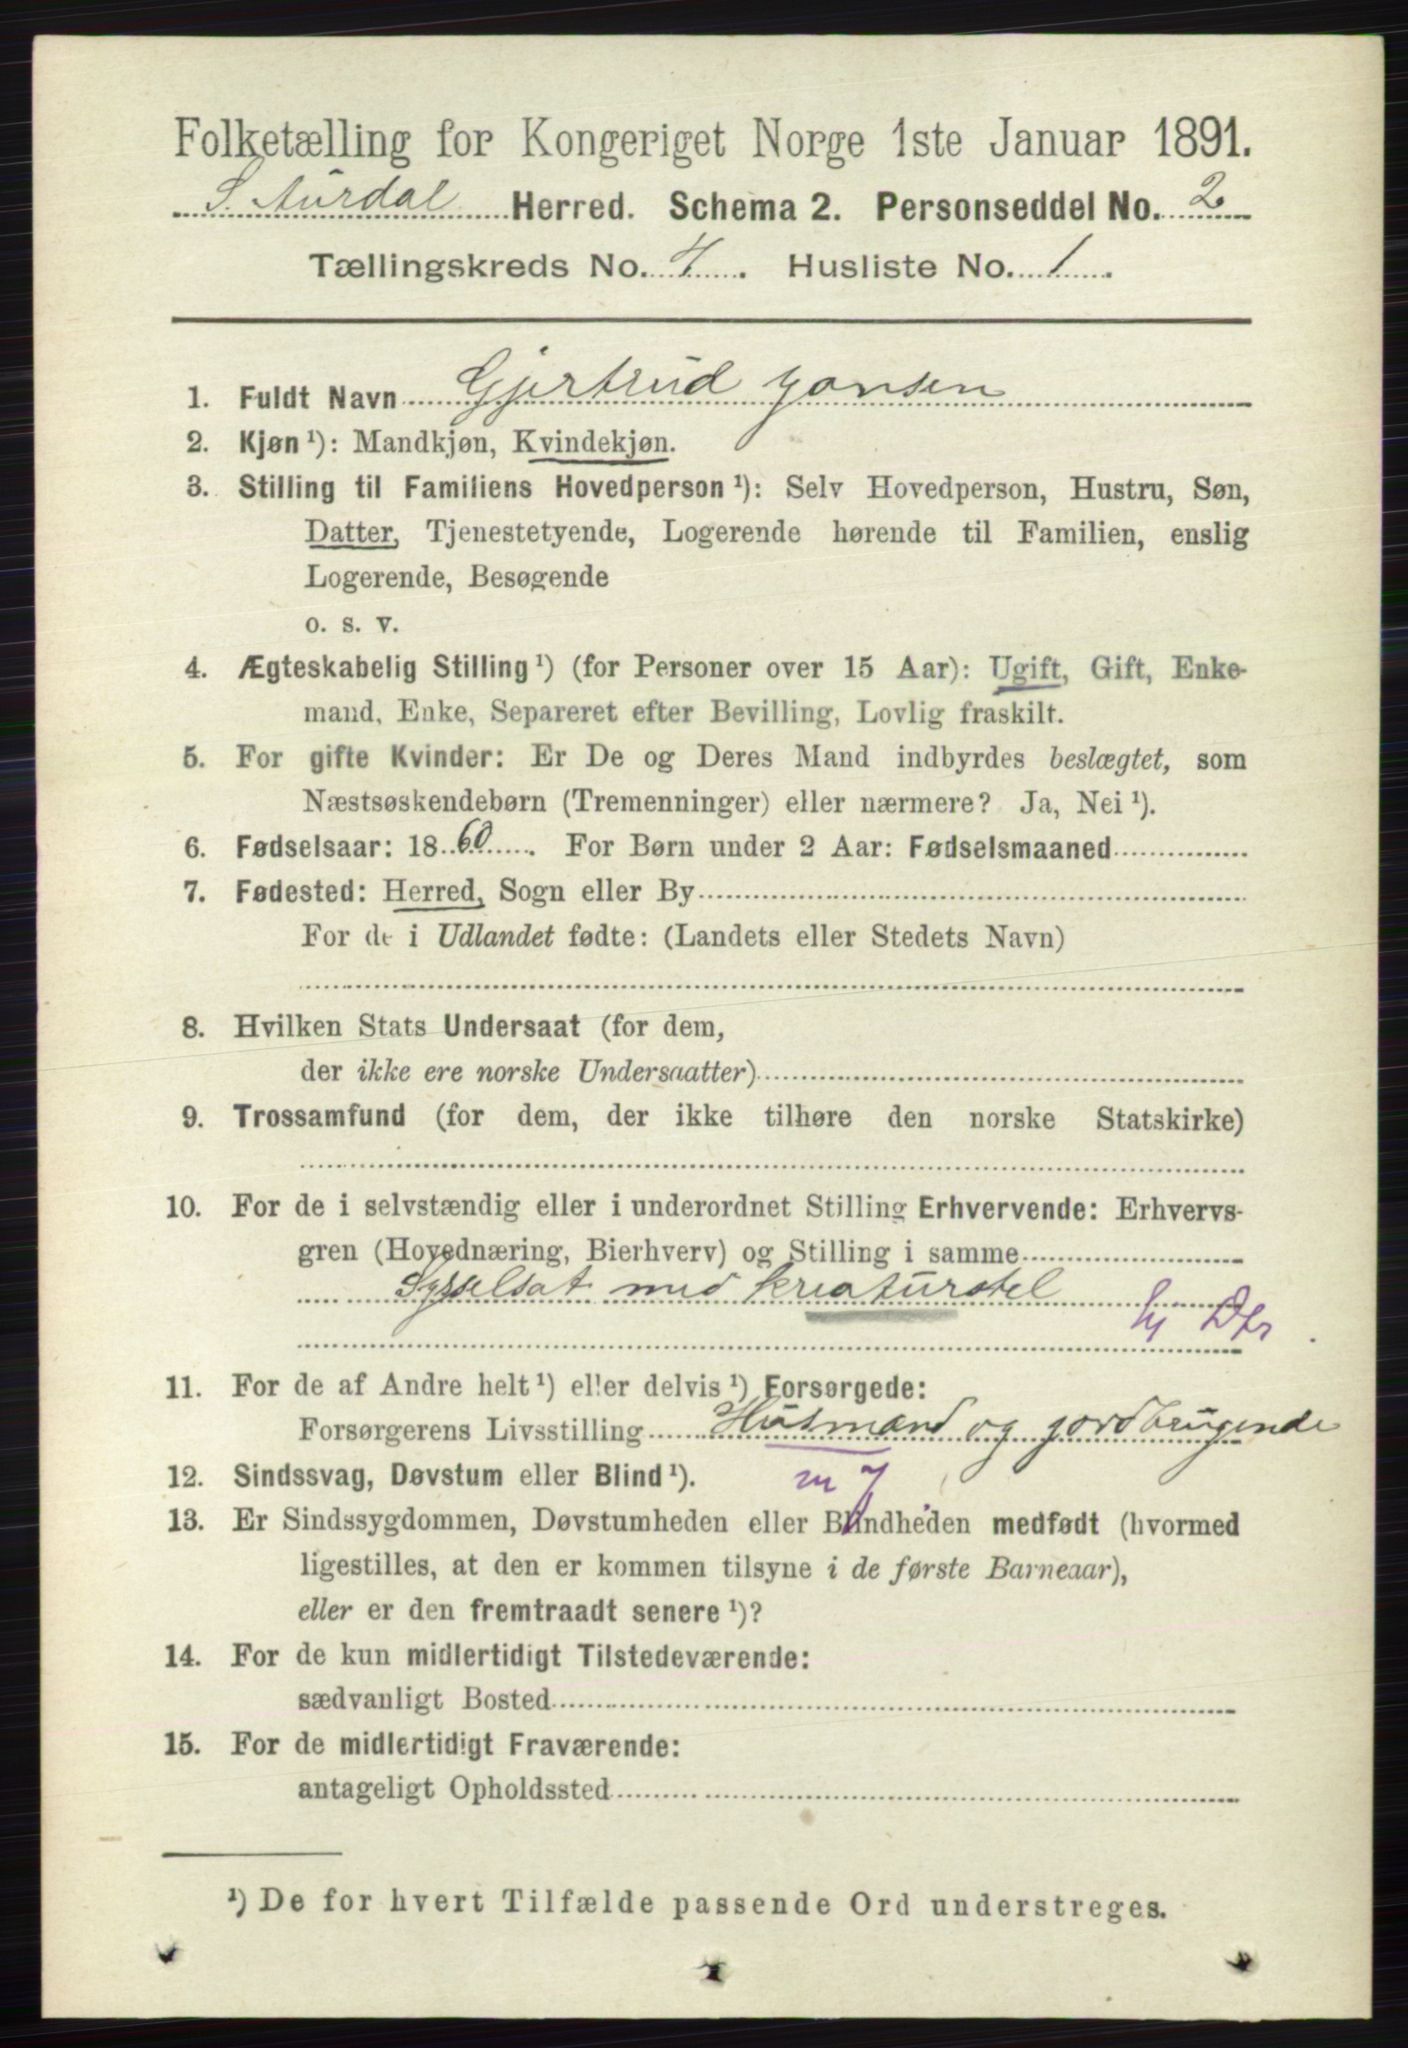 Folketælling for Kongeriget Norge 1ste Januar 1891.
S. Aurdal Herred. Schema 2. Personseddel No. 2
Tællingskreds No. 4. Husliste No. 1.
1. Fuldt Navn Gjertrud Jonsen
2. Kjøn ¹): Mandkjøn, Kvindekjøn.
3. Stilling til Familiens Hovedperson ¹): Selv Hovedperson, Hustru, Søn,
Datter, Tjenestetyende, Logerende hørende til Familien, enslig
Logerende, Besøgende
o. s. v.
4. Ægteskabelig Stilling ¹) (for Personer over 15 Aar): Ugift, Gift, Enke-
mand, Enke, Separeret efter Bevilling, Lovlig fraskilt.
5. For gifte Kvinder: Er De og Deres Mand indbyrdes beslægtet, som
Næstsøskendebørn (Tremenninger) eller nærmere? Ja, Nei ¹).
6. Fødselsaar: 1860. For Børn under 2 Aar: Fødselsmaaned
7. Fødested: Herred, Sogn eller By
For de i Udlandet fødte: (Landets eller Stedets Navn)
8. Hvilken Stats Undersaat (for dem,
der ikke ere norske Undersaatter)
9. Trossamfund (for dem, der ikke tilhøre den norske Statskirke)
10. For de i selvstændig eller i underordnet Stilling Erhvervende: Erhvervs-
gren (Hovednæring, Bierhverv) og Stilling i samme
Sysselsat med kreaturstel
11. For de af Andre helt ¹) eller delvis ¹) Forsørgede:
Forsørgerens Livsstilling Husmand og jordbrugende
12. Sindssvag, Døvstum eller Blind ¹).
13. Er Sindssygdommen, Døvstumheden eller Blindheden medfødt (hvormed
ligestilles, at den er kommen tilsyne i de første Barneaar),
eller er den fremtraadt senere ¹)?
14. For de kun midlertidigt Tilstedeværende:
sædvanligt Bosted
15. For de midlertidigt Fraværende:
antageligt Opholdssted
¹) De for hvert Tilfælde passende Ord understreges.